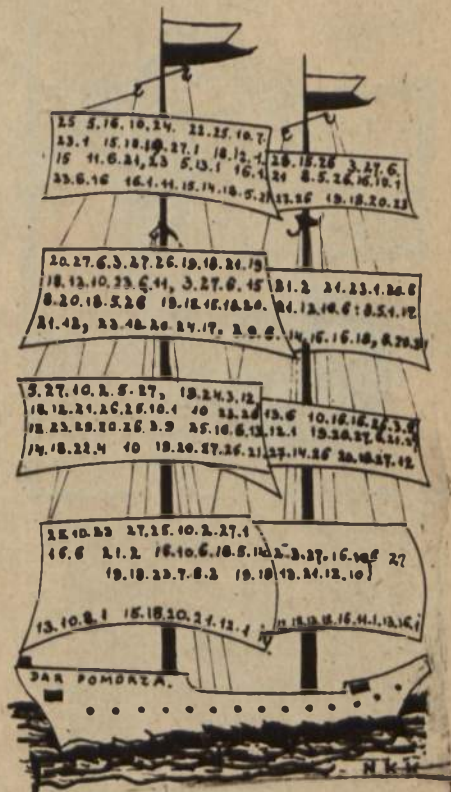 25 5.16.10.24. 22.25.10.7.
23.1 15.18.19.27.1 18.12.1.
15 11.6.21,23 5.13.1 16.1.
23.6.16 16.1.11.15.14.18.5.21
28.15.26 3.27.6.
21 8.5.26.16.10.1
27.26 19.18.20.23
20.27.6.3.27.26.19.18.21.19
18.12.10.23.6.11, 3.27.6.15
8.20.18.5.26 19.18.15.18.20.
21.12, 23.18.20.24.17, 20.6.
21.2 21.23.1.20.6
21.12.10.6:8.5.1.17.
14.16.16.18, 8.20.21
5.27.10.2.5.27, 19.24.3.12
18.12.21.26.26.10.1 10 23.26
12.23.29.20.26.3.9 25.10.6.13
14.18.22.4 10 19.20.27.26.21.
13.6 10.16.16.26.3.6
12.1 19.20.27.6.21.27
27.14.26 20.18.27.12
25.10.23 27.25.10.2.27.1
16.6 21.2 16.10.6.18.5.12
19.18.23.7.8.2 19.18
13.10.8.1 15.18.20.21.12.1
2.3.27.16.10.6 27
13.21.12.10
DAR POMORZA.
NKW